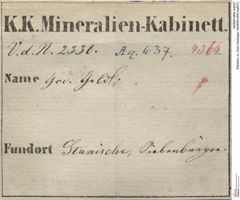 K.K. Mineralien-Kabinett.
V. d. N. 2330. Aq. 637. 4364
Name Ged. Gold.
Fundort Stanische, Siebenbürgen.